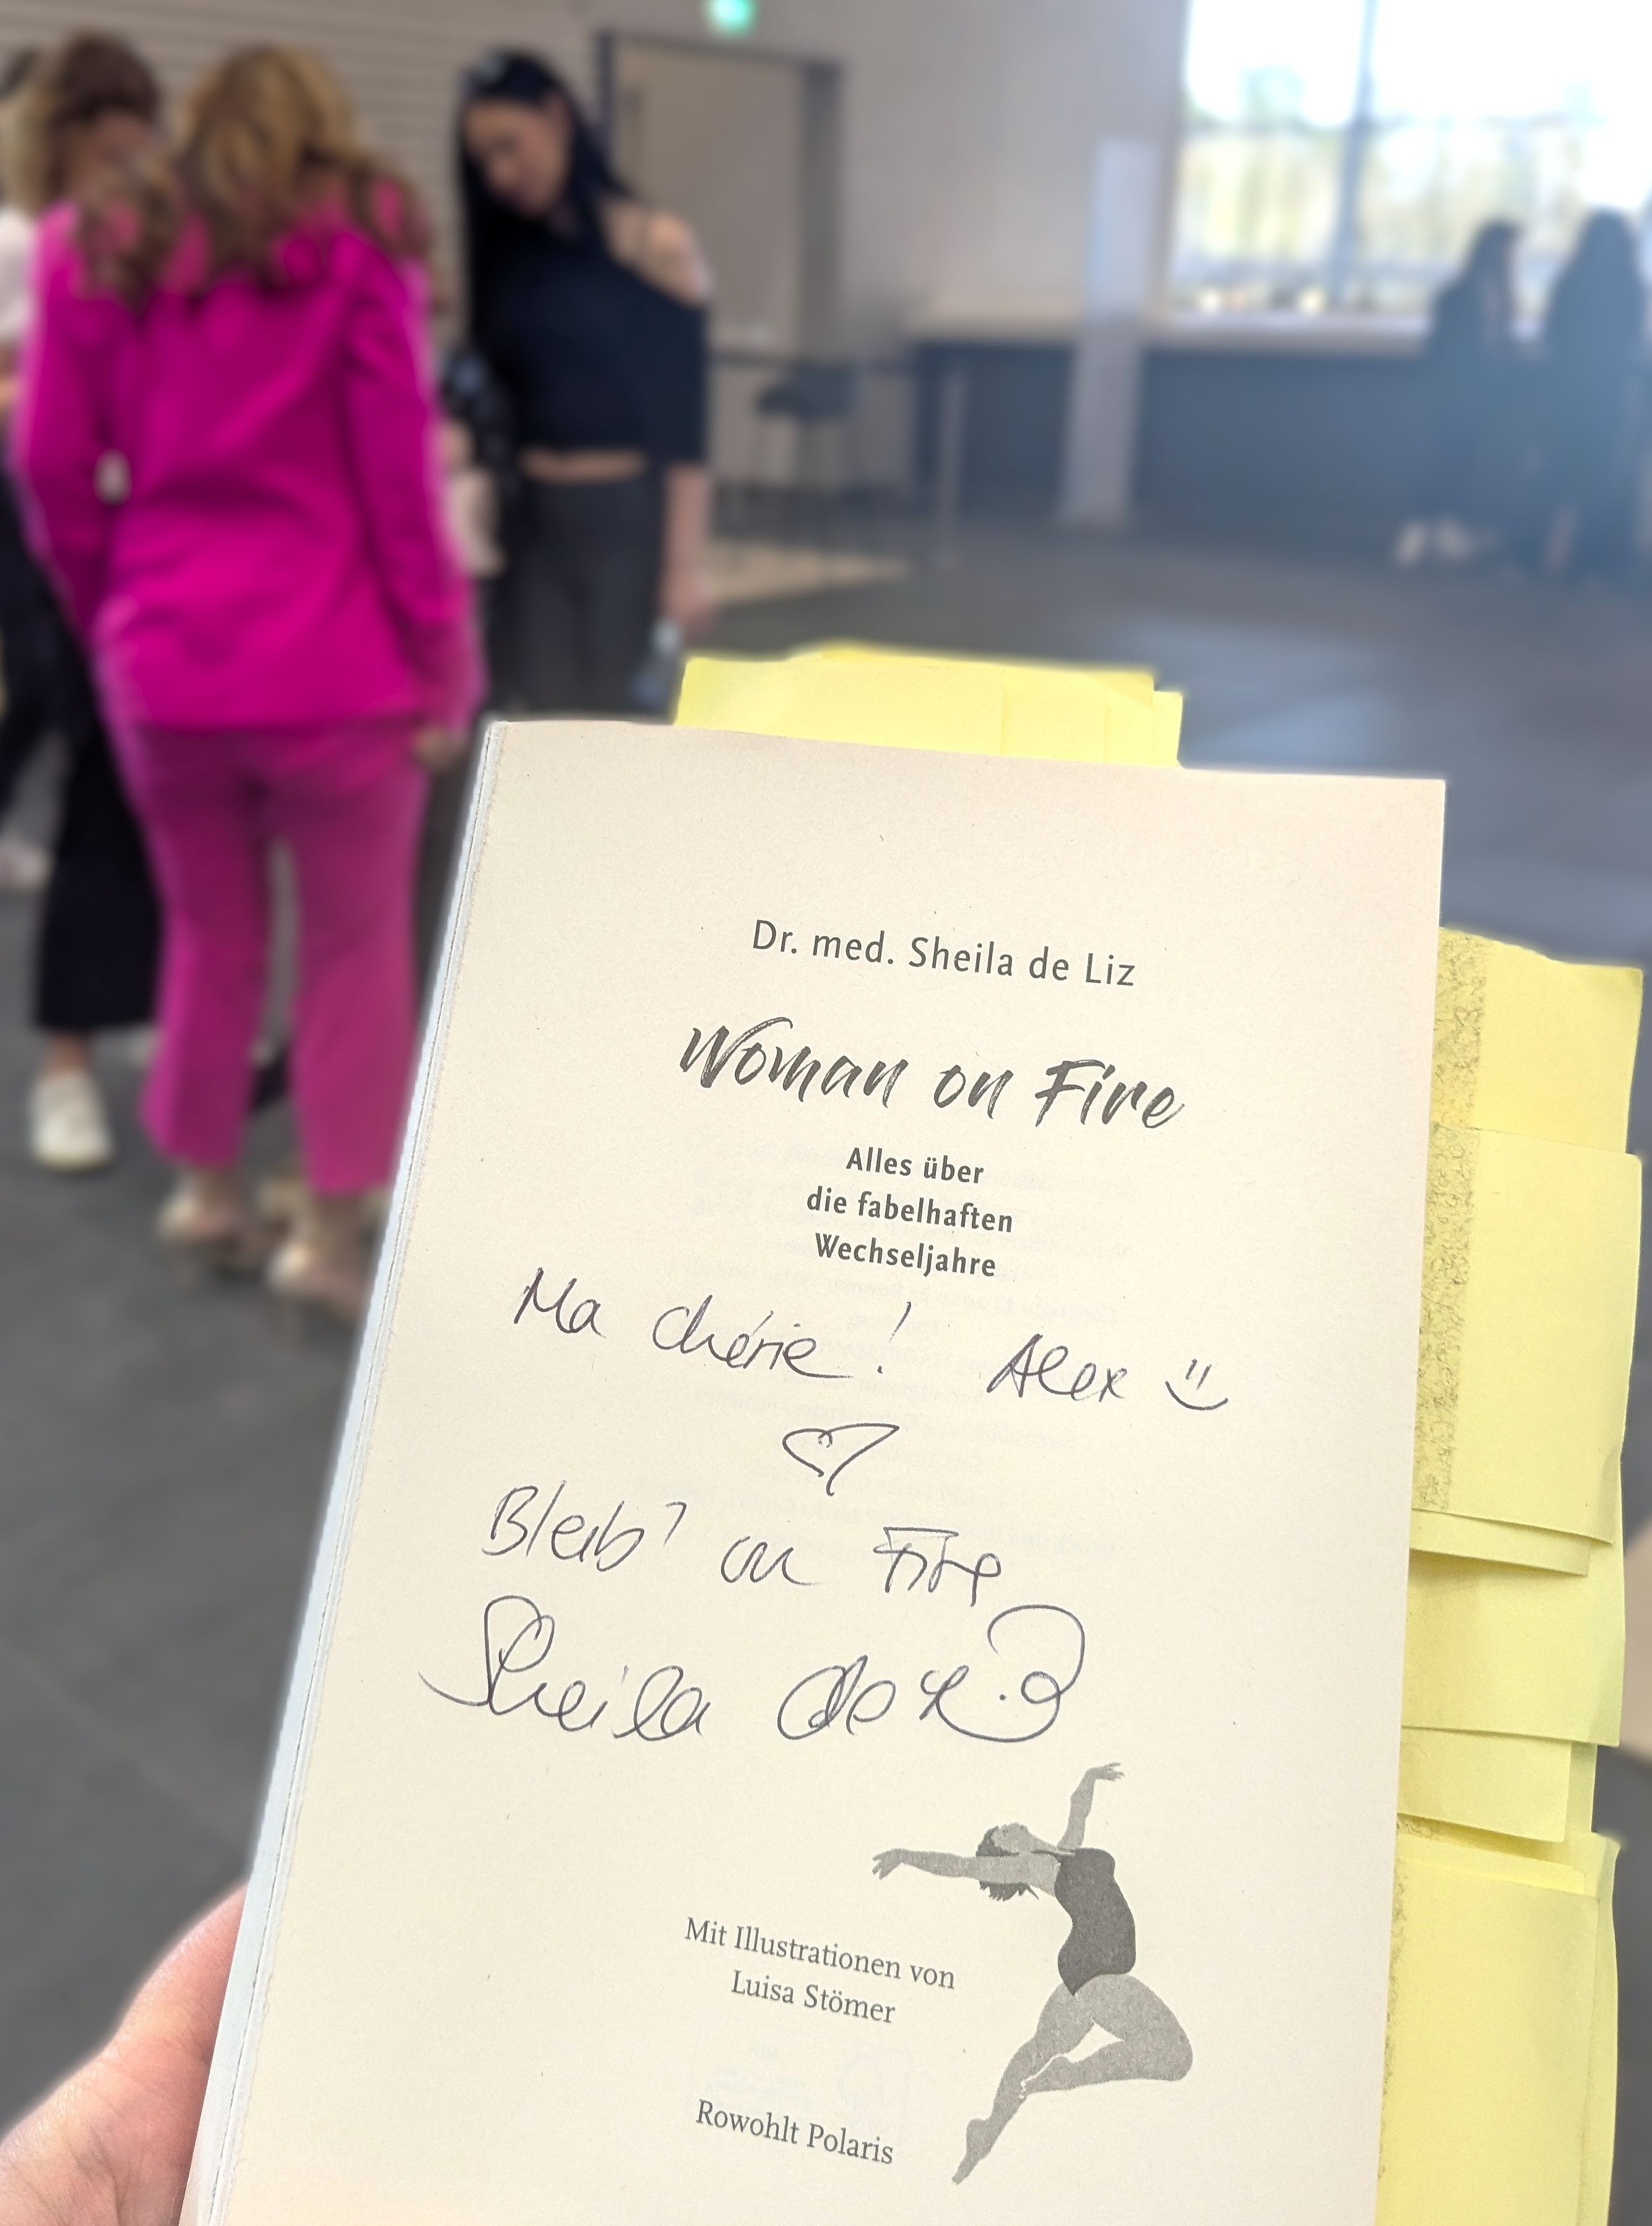 Dr. med. Sheila de Liz
Woman on Fire
Alles über
die fabelhaften
Wechseljahre
Ma chérie! Alex
Bleib' on Fire
Sheila de Liz
Mit Illustrationen von
Luisa Stömer
Rowohlt Polaris